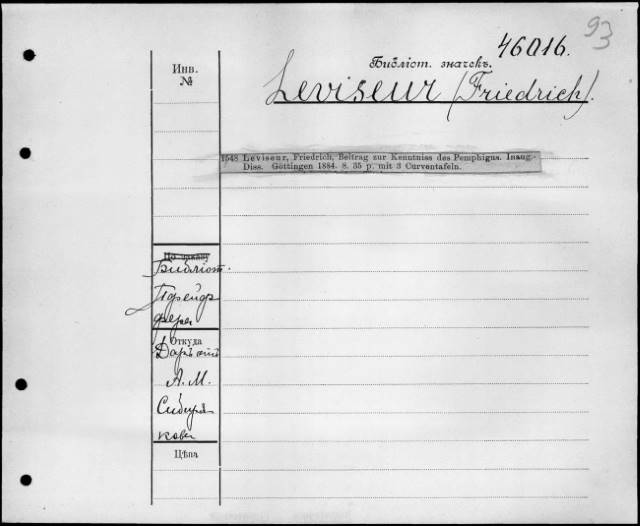 93
46016.
Инв.
№
Библіот. значекъ.
Leviseur (Friedrich).
1548 Leviseur, Friedrich, Beitrag zur Kenntniss des Pemphigus. Inaug.-
Diss. Göttingen 1884. 8. 35 p. mit 3 Curventafeln.
По заказу
Библіот.
Пфейф
фера
Откуда
Даръ отъ
А. М.
Сибиря-
кова
Цѣна